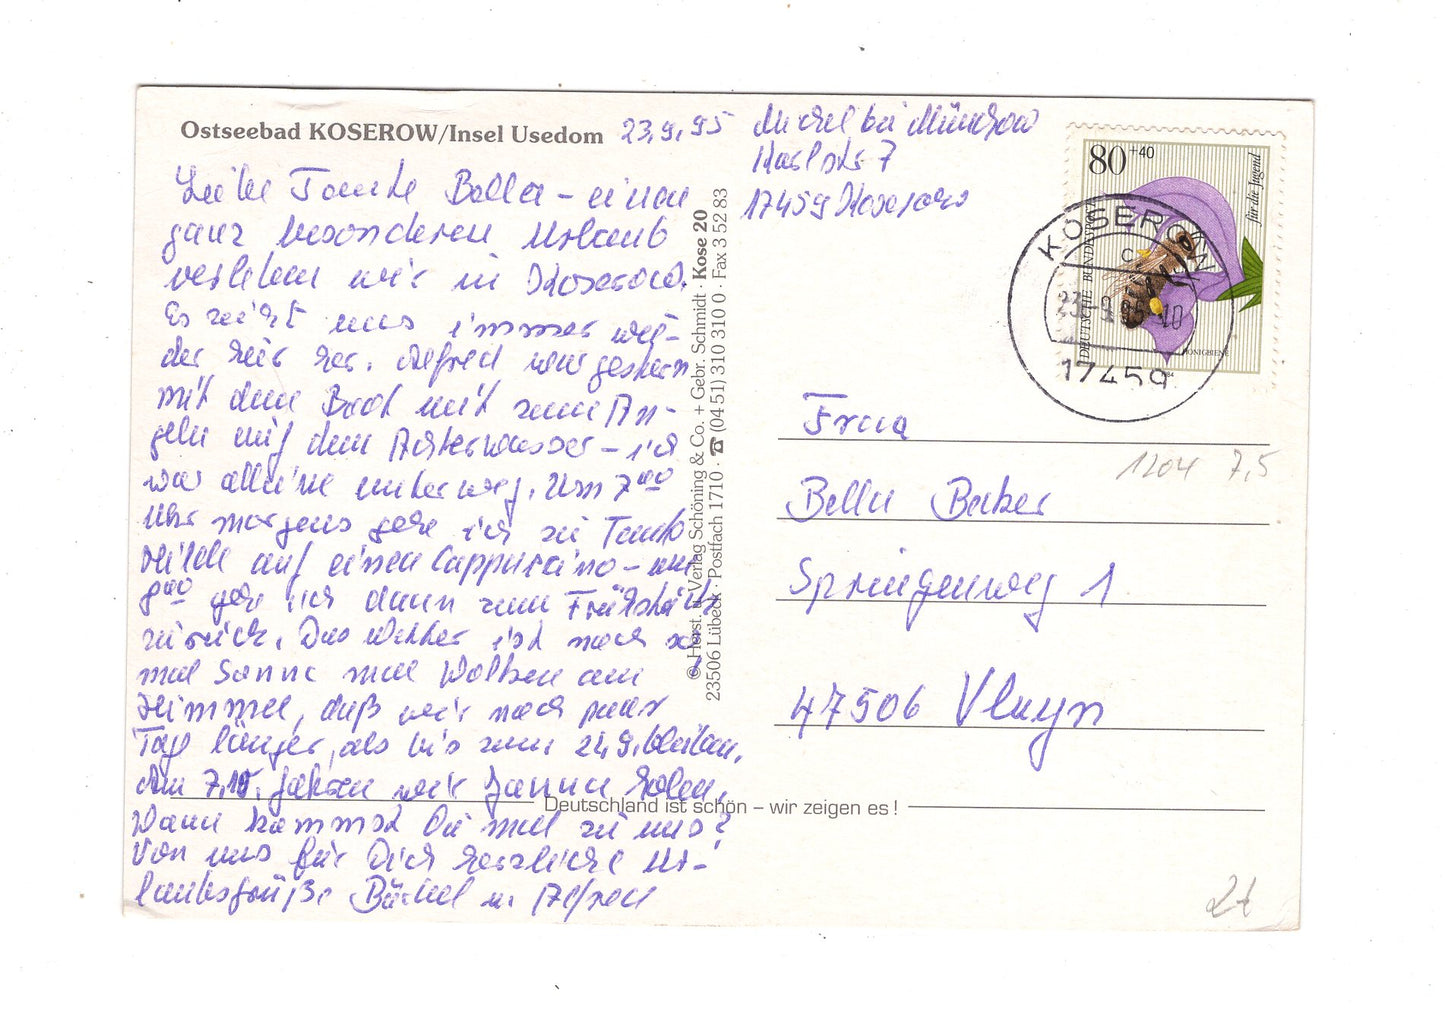 Ostseebad KOSEROW/Insel Usedom 23.9.95
Liebe Tante Bella - einen
ganz besonderen Urlaub
verleben wir in Koserow.
Es zieht uns immer wie-
der hier her. Alfred war gestern
mit dem Boot mit zum An-
geln auf dem Achterwasser - ich
war alleine unterweg. Um 7 00
Uhr morgens gehe ich zu Tante
Hilde auf einen Cappuccino - um
8 00 gehe ich dann zum Frühstück
zurück. Das Wetter ist noch so
mal Sonne mal Wolken am
Himmel, daß wir noch paar
Tage länger, als bis zum 24.9. bleiben.
Am 7.10. fahren wir Janna holen.
Wann kommst Du mal zu uns?
Von uns für Dich herzliche Ur-
laubsgrüße Bärbel u. Alfred
Michel bei Münchow
Karlstr 7
17459 Koserow
© Horst. u. Verlag Schöning & Co. + Gebr. Schmidt · Kose 20
23506 Lübeck · Postfach 1710 · ☎ (04 51) 310 310 0 · Fax 3 52 83
80 +40
für die Jugend
DEUTSCHE BUNDESPOST
HONIGBIENE
KOSEROW
C
23.-9.95-10
17459
Frau
1204 7,5
Bella Becker
Springenweg 1
47506 Vluyn
Deutschland ist schön – wir zeigen es!